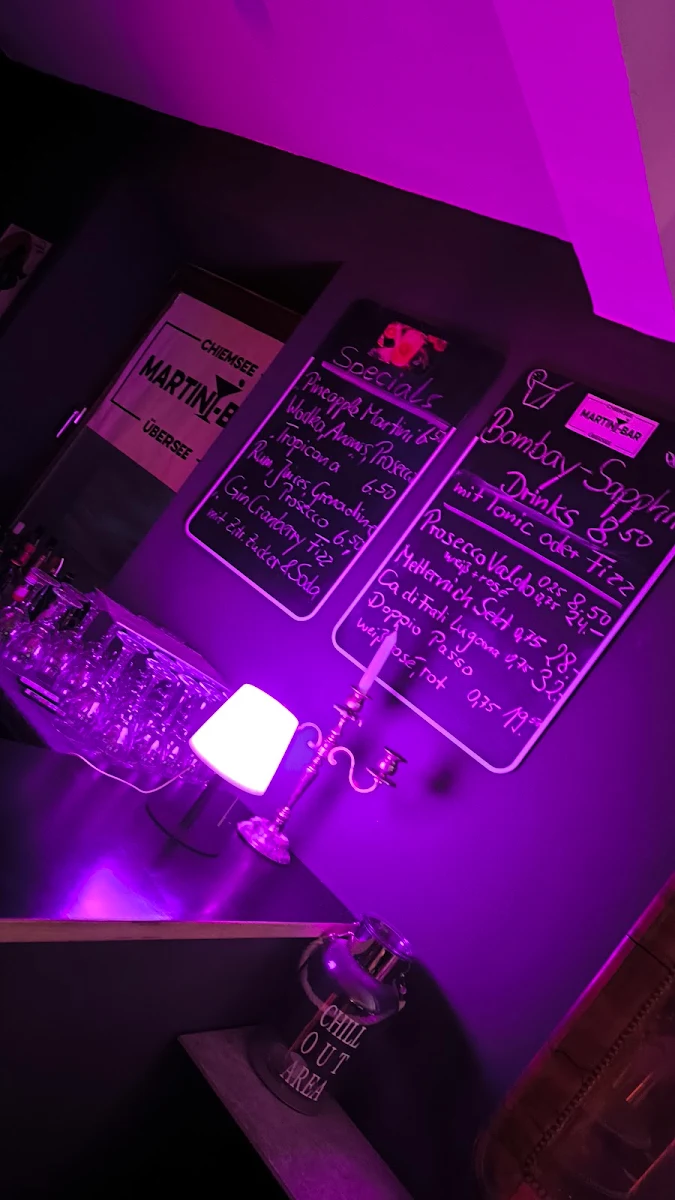 CHIEMSEE
MARTINI-B
ÜBERSEE
Specials
Pineapple Martini 6.50
Wodka, Ananas, Prosecco
Tropicana 6.50
Rum, Grenadine
Prosecco 6,50
Gin Cranberry Fizz
mit Zitr. Zucker & Soda
CHIEMSEE
MARTINI-BAR
ÜBERSEE
Bombay-Sapphir
Drinks 8,50
mit Tonic oder Fizz
Prosecco Valdo 0,25 8,50
weiß + rosé 0,75 24,-
Metternich Sekt 0,75 28,-
Ca di Frati Lugana 0,75 32,-
Doppio Passo
weiß, rosé, rot 0,75 19.-
CHILL
OUT
AREA